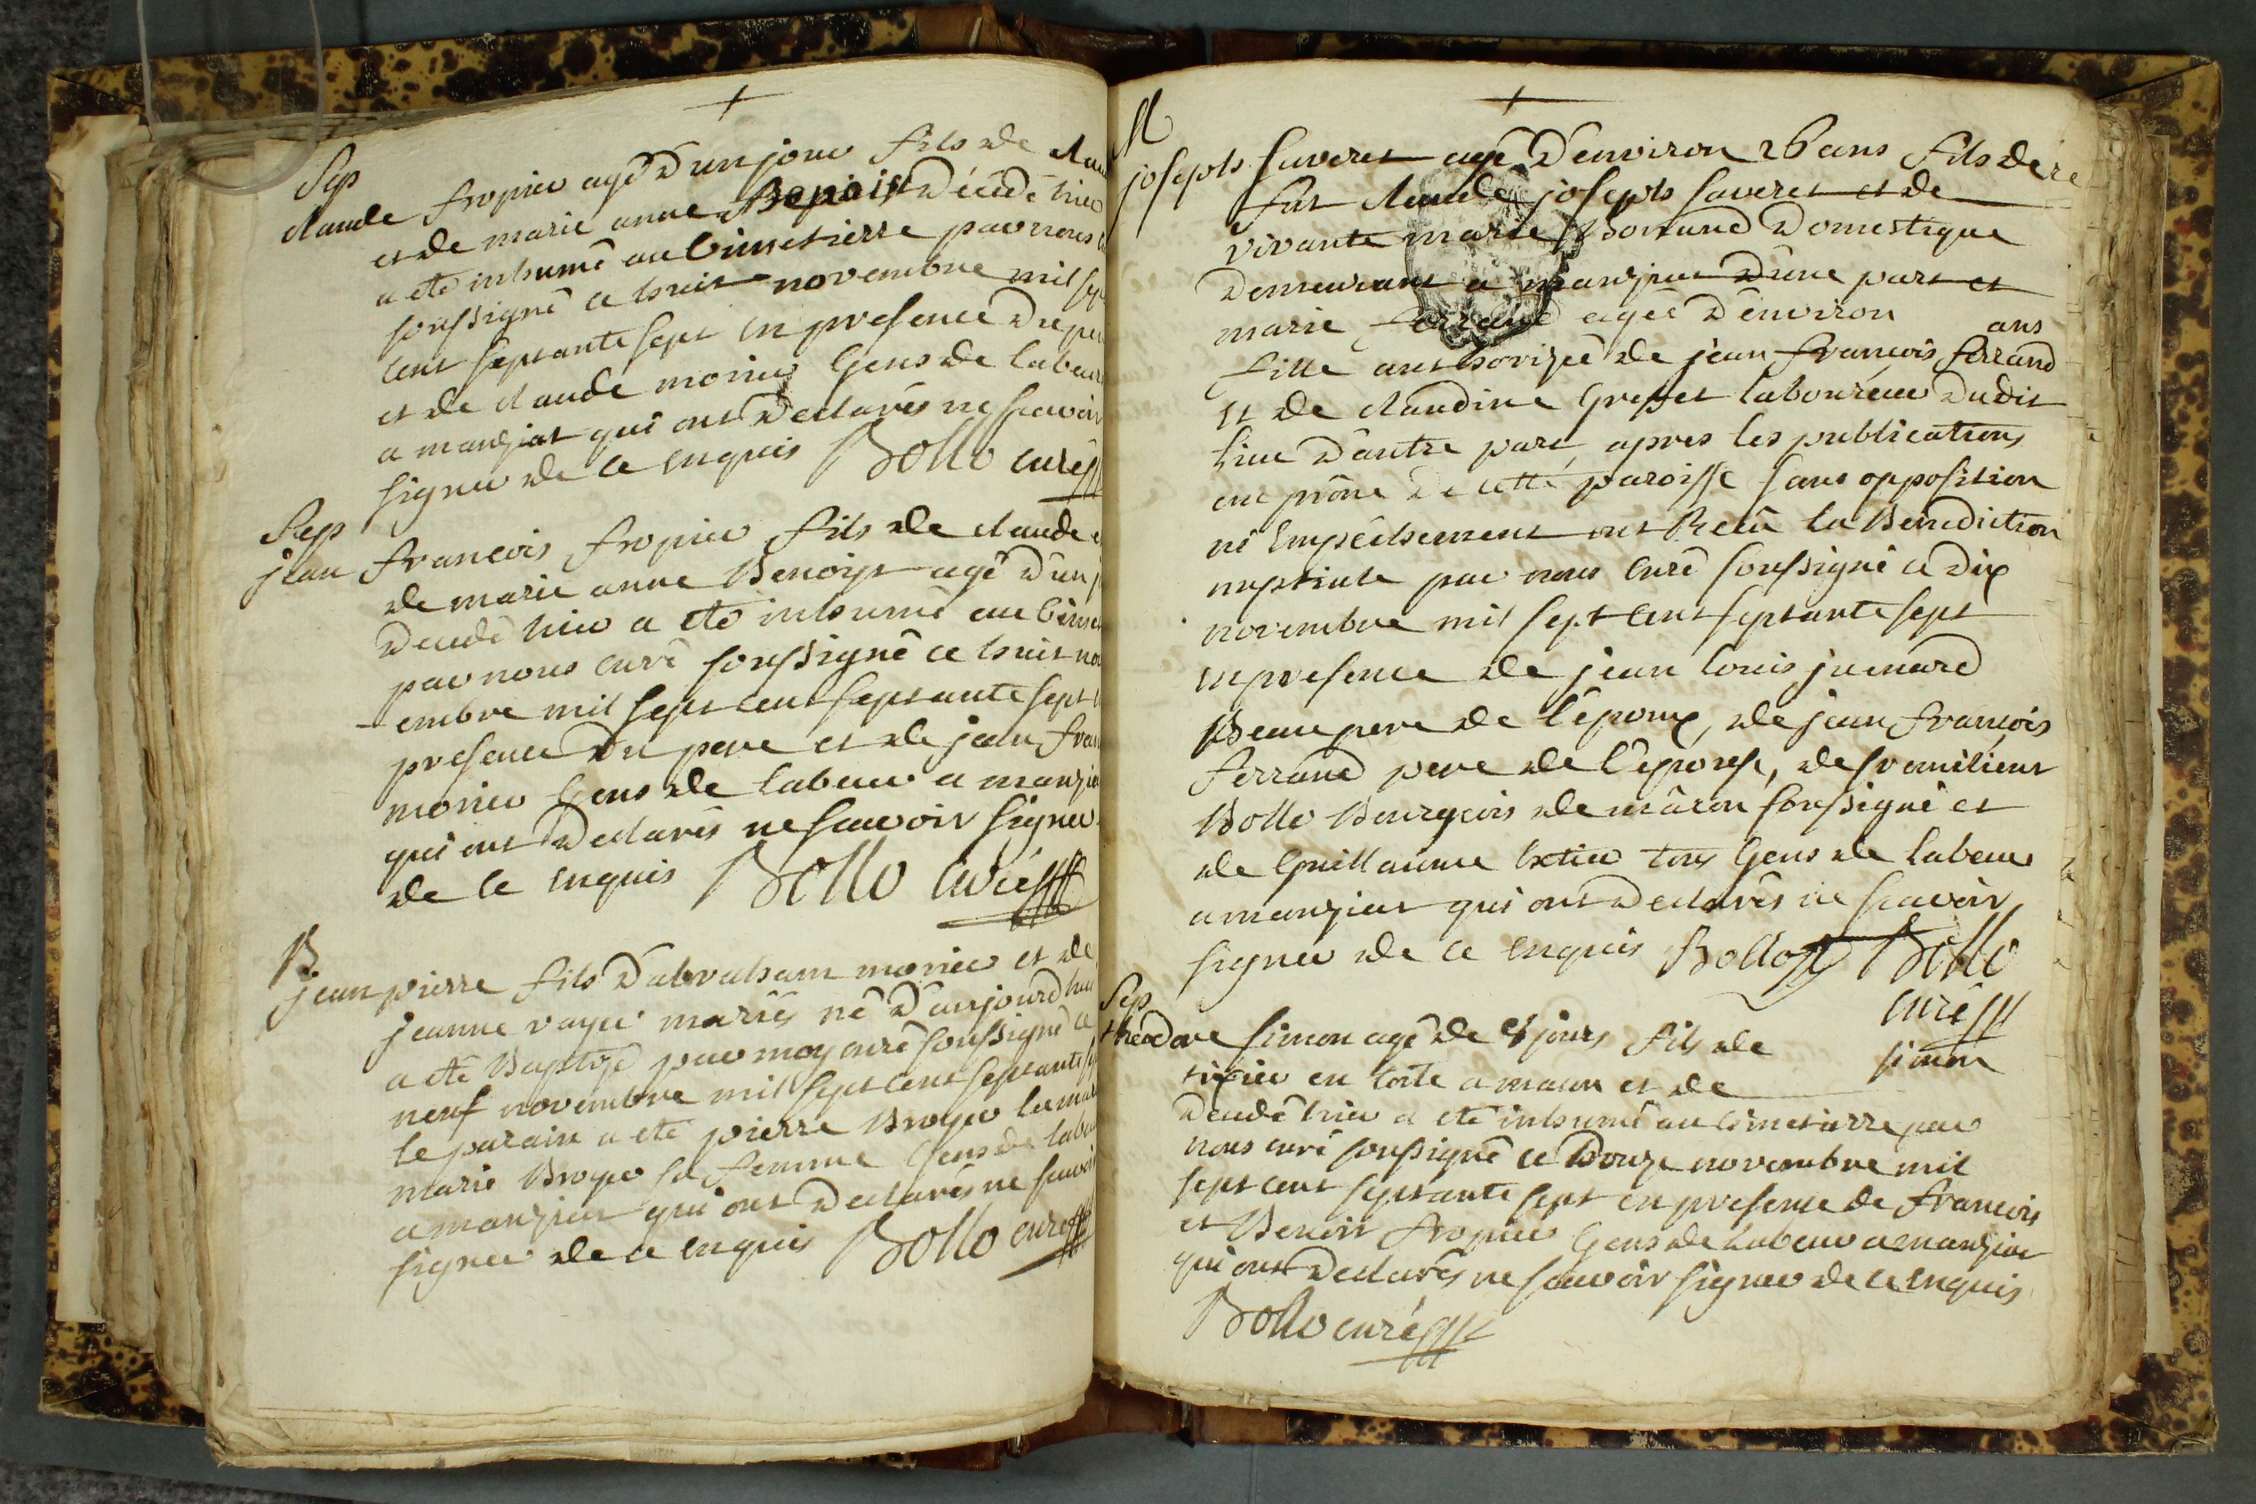 Sep
claude fropier agé d'un jour fils de clau
et de marie anne Benoist décédé hier
a eté inhumé au cimetierre par nous c
soussigné ce huit novembre mil sep
cent septante sept en presence du per
et de claude monier Gens de labeur
a manziat qui ont declarés ne scavoir
signer de ce enquis Bollo curé
Sep
jean françois fropier fils de claude e
de marie anne Benoist agé d'un j
decedé hier a eté inhumé au cimet
par nous curé soussigné ce huit nov
-embre mil sept cent septante sept e
presence du pere et de jean fran
monier Gens de labeur a manzia
qui ont declarés ne scavoir signer
de ce enquis Bollo curé
B
jean pierre fils d'abraham monier et de
jeanne voyer mariés né d'aujourd'hui
a eté Baptizé par moy curé soussigné ce
neuf novembre mil sept cent septante sep
le parain a eté pierre Broyer la mar
marie Broyer sa femme Gens de labeu
a manziat qui ont declarés ne scavoir
signer de ce enquis Bollo curé
M
joseph saveret agé d'environ 26 ans fils de
fut claude joseph saveret et de
vivante marie Bonnand domestique
demeurant a manziat d'une part et
marie ferrand agée d'environ ans
fille authorizée de jean françois ferrand
et de claudine Greffet laboureur dudit
lieu d'autre part, apres les publications
au prône de cette paroisse sans opposition
ni Empêchement ont Recû la Benediction
nuptiale par nous curé soussigné ce dix
novembre mil sept cent septante sept
en presence de jean louis jumard
Beau pere de l'époux, de jean françois
ferrand pere de l'épouse, de
Bollo Bourgeois de mâcon soussigné et
de Guillaume tous Gens de labeur
a manziat qui ont declarés ne scavoir
signer de ce enquis Bollo Bollo
curé
Sep
théodore simon agé de jours fils de simon
en toile a macon et de
decedé hier a eté inhumé au cimetierre par
nous curé soussigné ce douze novembre mil
sept cent septante sept en presence de françois
et Benoit fropier Gens de labeur a manziat
qui ont declarés ne scavoir signer de ce enquis
Bollo curé